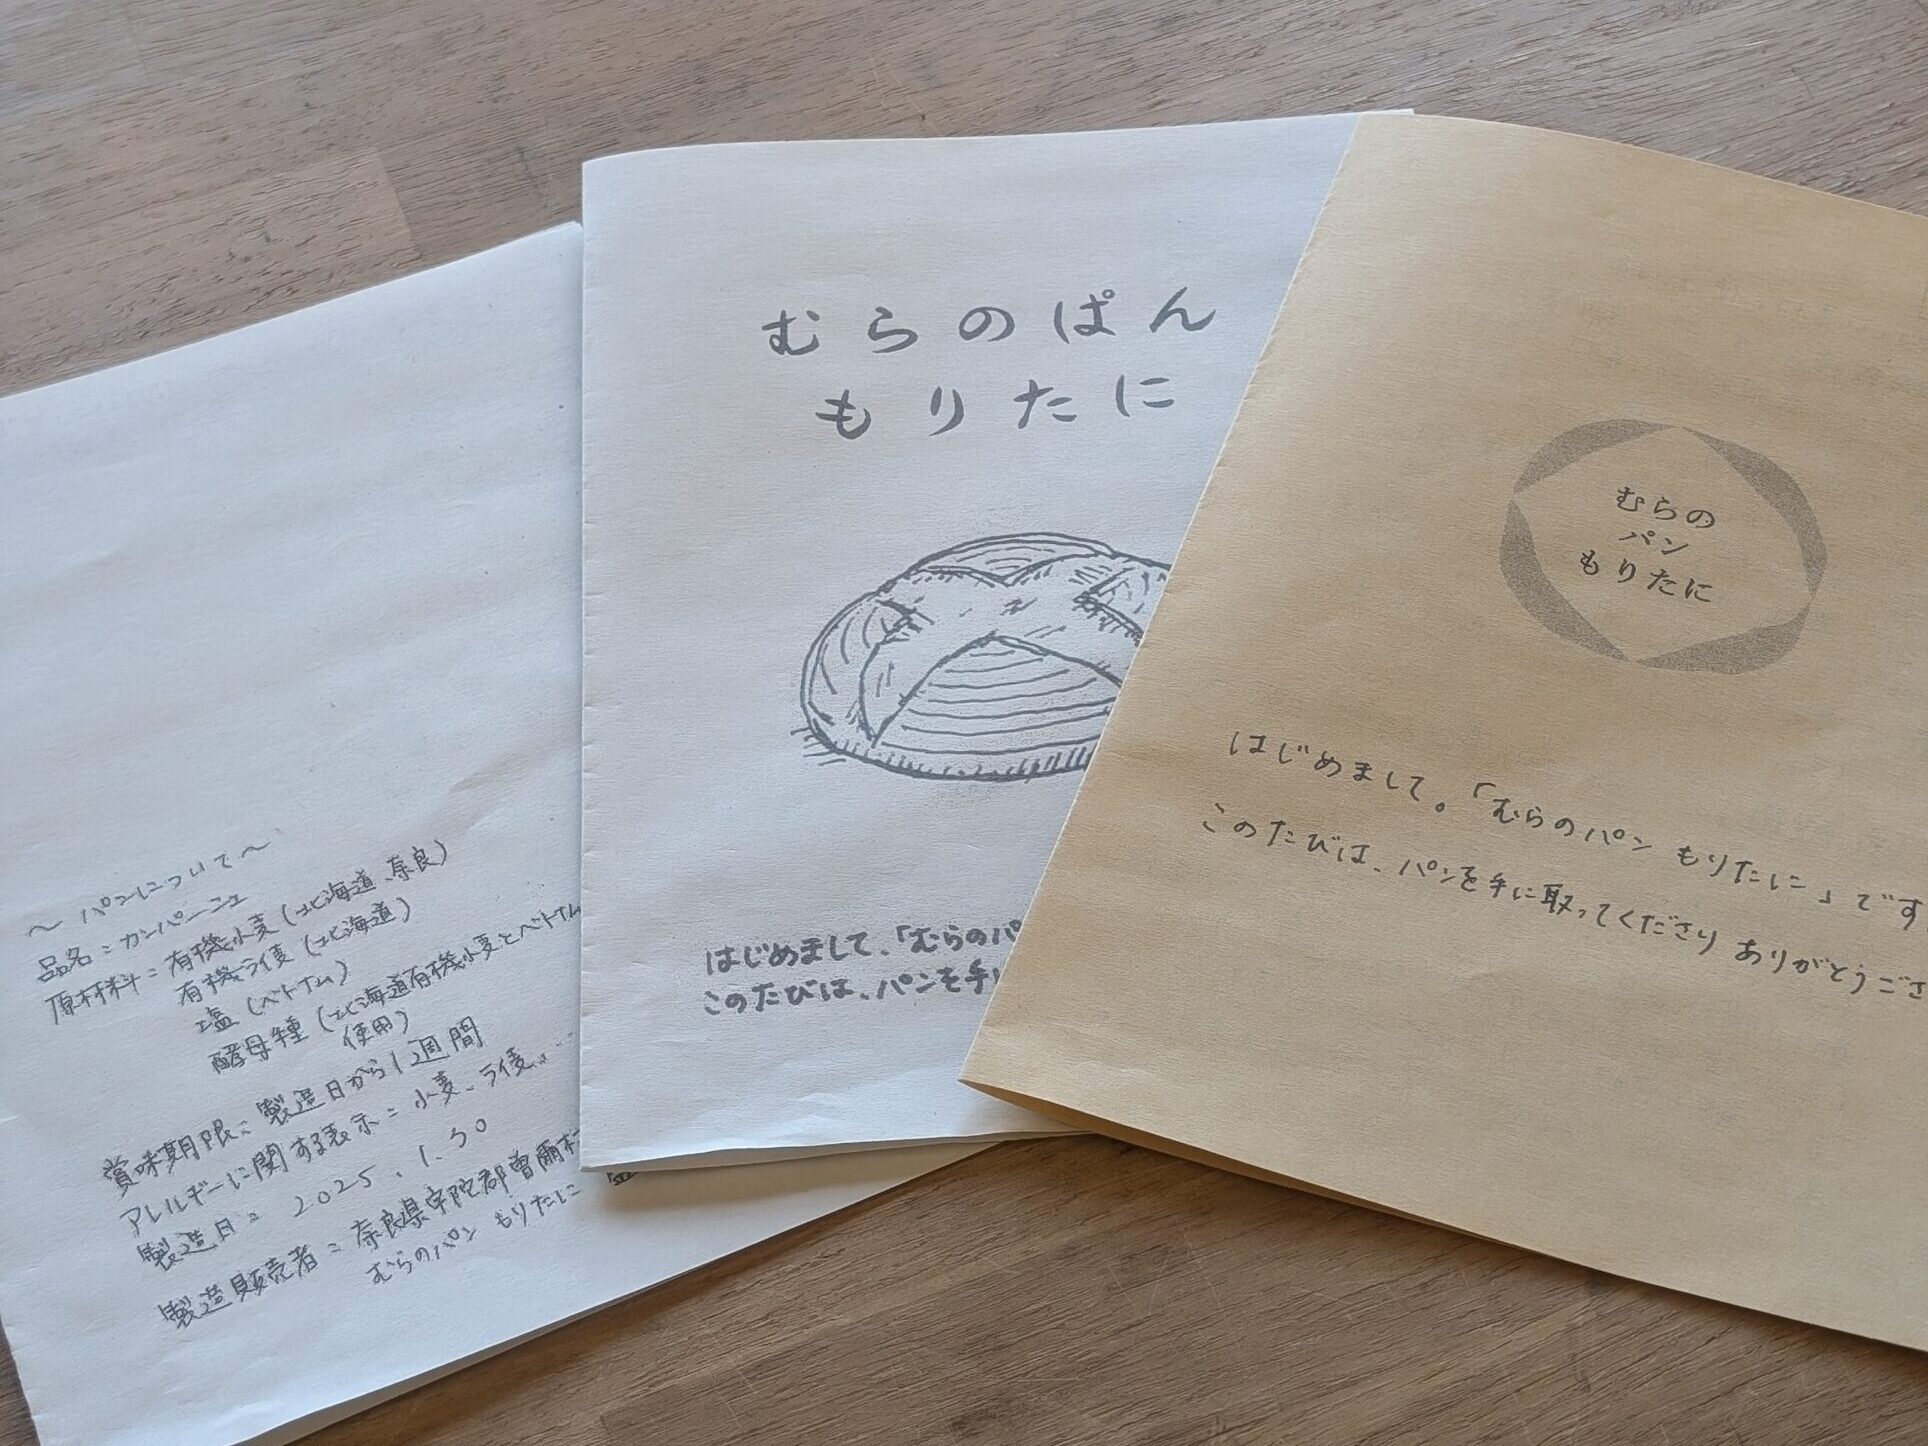 〜パンについて〜
品名=カンパーニュ
原材料=有機小麦(北海道、奈良)
有機ライ麦(北海道)
塩(ベトナム)
酵母種(北海道有機小麦とベトナム
使用)
賞味期限=製造日から1週間
アレルギーに関する表示=小麦、ライ麦
製造日=2025.1.30
製造販売者=奈良県宇陀郡曽爾村
むらのパン もりたに
むらのぱん
もりたに
はじめまして、「むらのパ
このたびは、パンを手に
むらの
パン
もりたに
はじめまして。「むらのパン もりたに」です
このたびは、パンを手に取ってくださり ありがとうござ